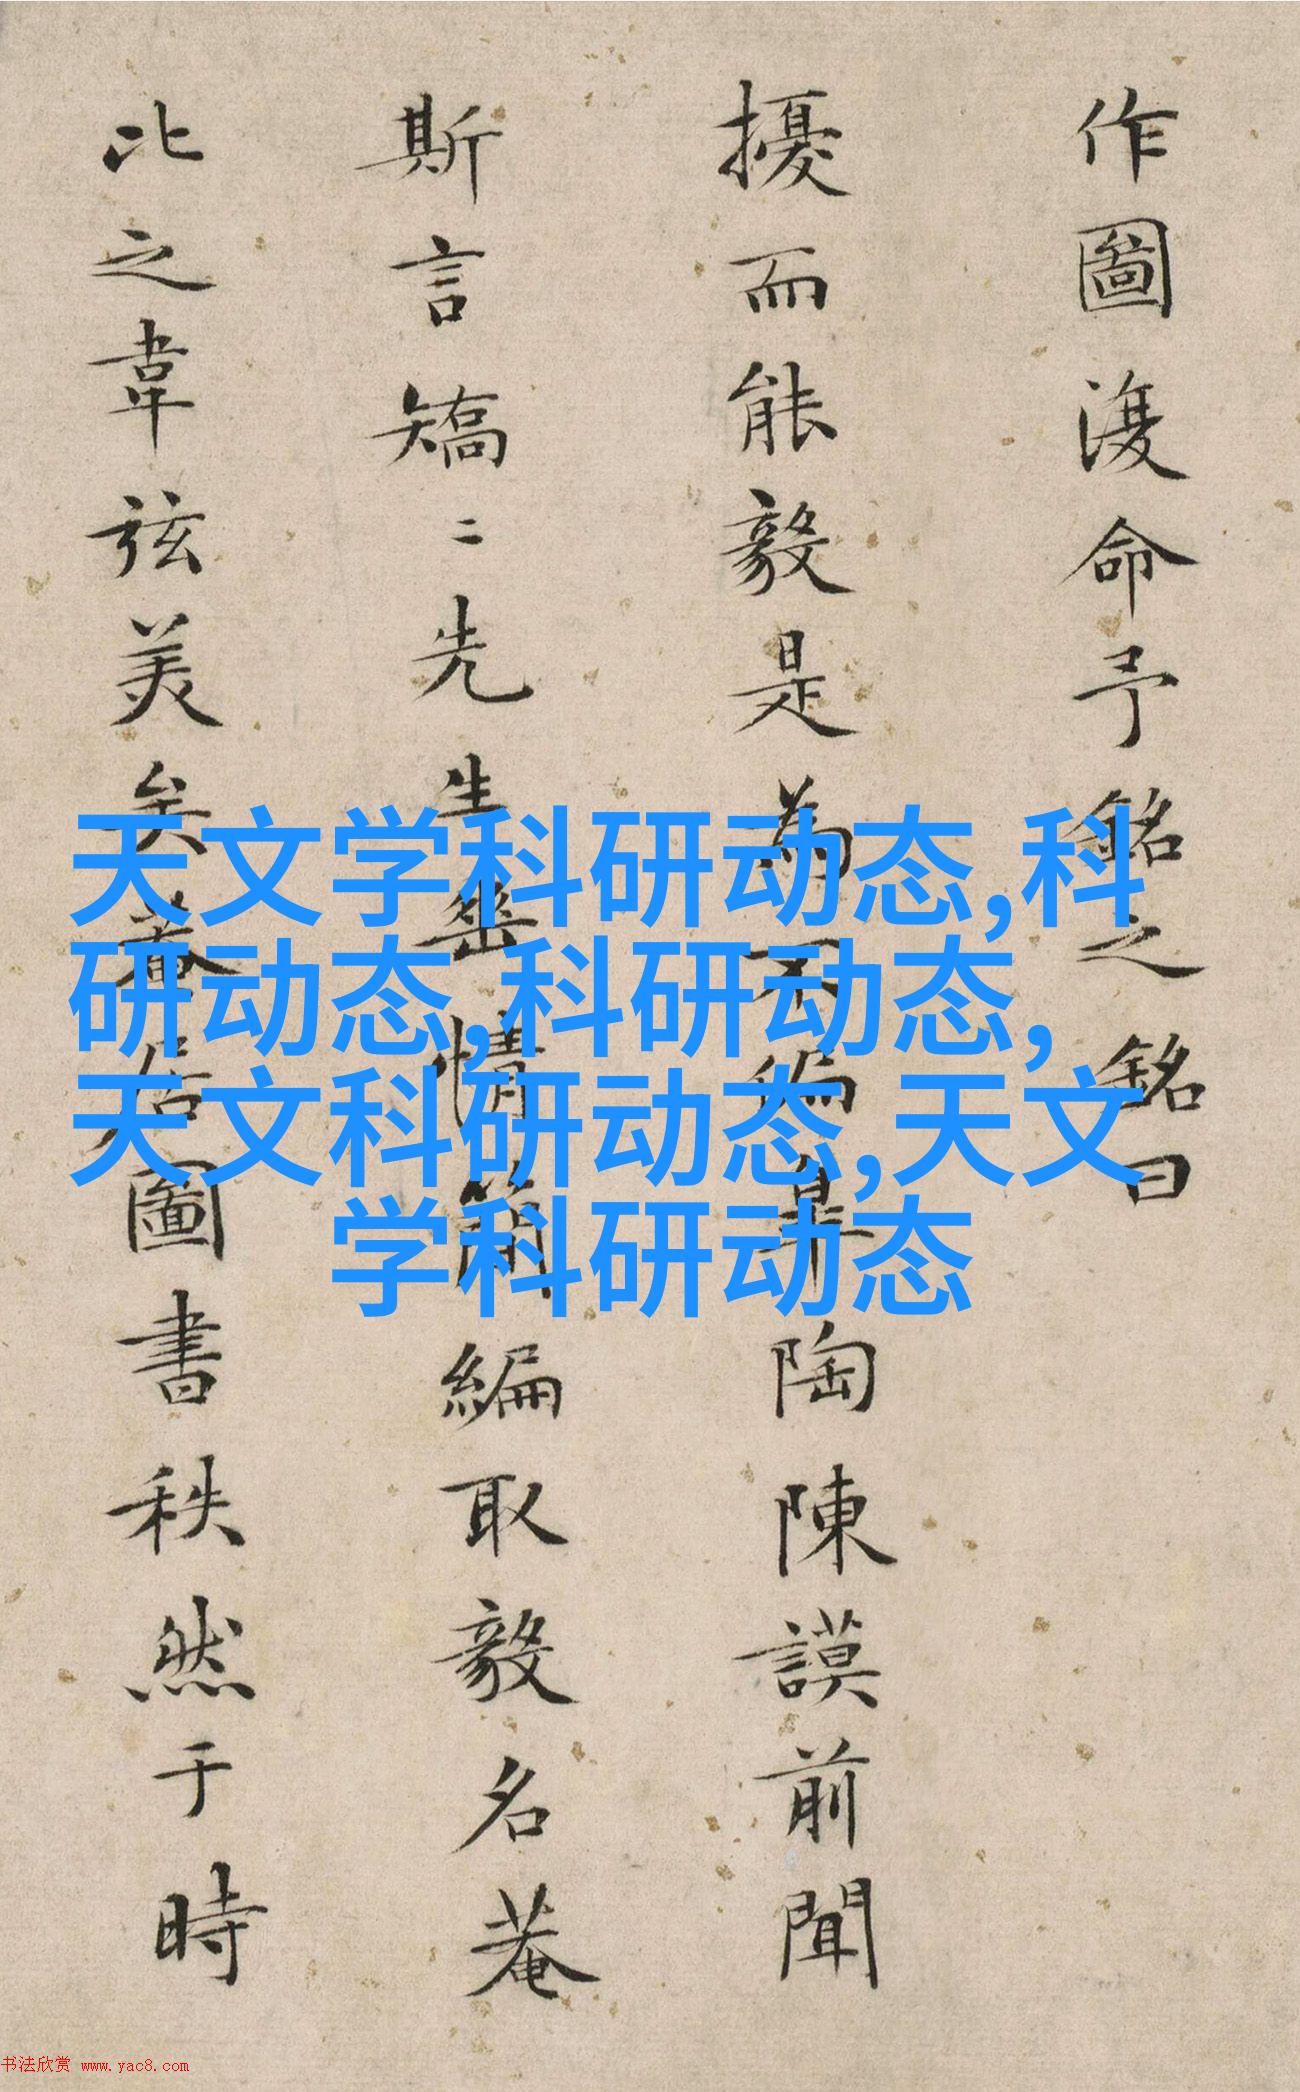 作圖復命予銘之銘曰
擾而能毅是為不偏皋陶陳謨前聞
斯言矯二先生㓜情簡編取毅名菴
比之韋弦美矣菴居圖書秩然于時
天文学科研动态,科
研动态,科研动态,
天文科研动态,天文
学科研动态
书法欣赏 www.yac8.com